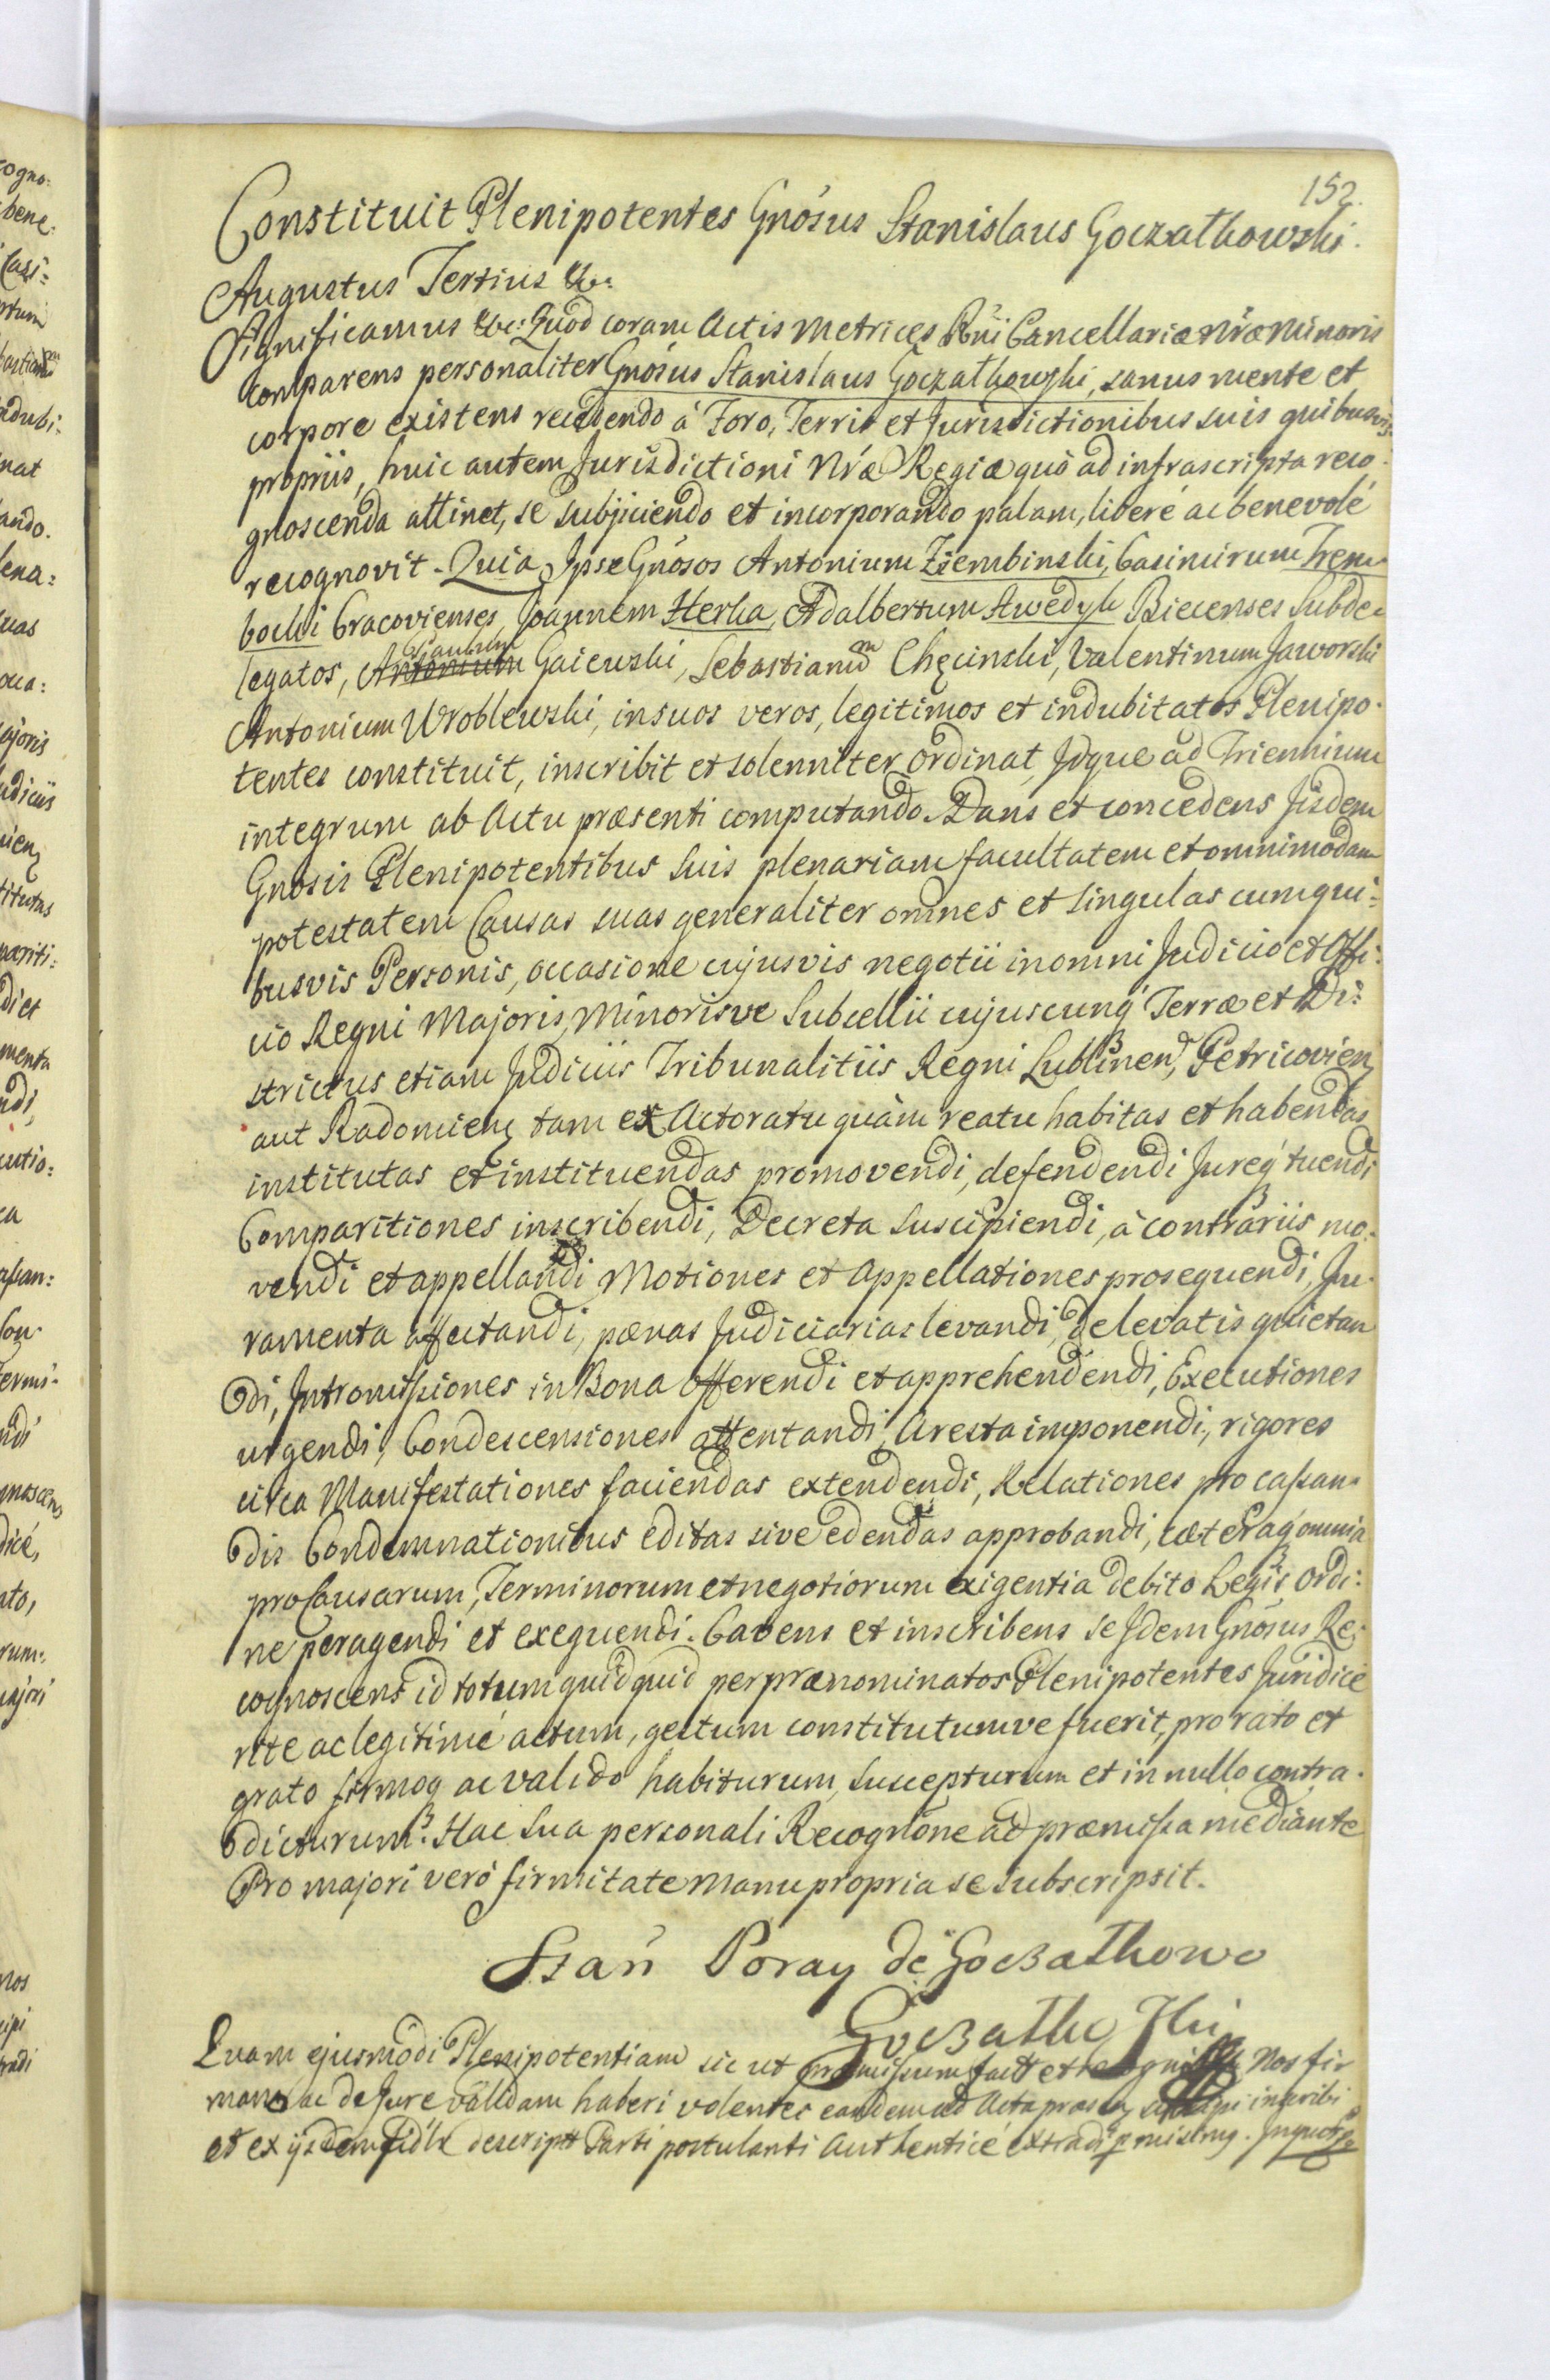 152.
Constituit Plenipotentes Gnosus Stanislaus Goczalkowski.
Augustus Tertius &c:
Significamus &c: Quod coram Actis Metrices Rñi Cancellariæ Nræ Minoris
comparens personaliter Gnosus Stanislaus Goczalkowski, sanus mente et
corpore existens recedendo à Foro, Terris et Jurisdictionibus suis quibusvis
propriis, huic autem Jurisdictioni Nræ Regiæ quò ad infrascripta reco-
gnoscenda attinet, se subjiciendo et incorporando palam, liberè ac benevolè
recognovit. Quia Ipse Gnosos Antonium Ziembinski, Casimirum Trem-
bocki Cracovienses, Joannem Herka, Adalbertum Awedyk Biecenses Subde-
legatos, Antonium Gaiewski, Sebastianum Chęcinski, Valentinum Jaworski
Antonium Wroblewski, in suos veros, legitimos et indubitatos Plenipo-
tentes constituit, inscribit et solenniter ordinat, Idque ad Triennium
integrum ab Actu præsenti computando. Dans et concedens Iisdem
Gnosis Plenipotentibus suis plenariam facultatem et omnimodam
potestatem Causas suas generaliter omnes et singulas cumqui-
busvis Personis, occasione cujusvis negotii in omni Judicio et Offi-
cio Regni Majoris, Minorisve Subcellii cujuscunq Terræ et Di-
strictus etiam Judiciis Tribunalitiis Regni Lublinen, Petricovien
aut Radomien tam ex Actoratu quàm reatu habitas et habendas
institutas et instituendas promovendi, defendendi Jureq tuendi
Comparitiones inscribendi, Decreta suscipiendi, à contrariis mo-
vendi et appellandi Motiones et Appellationes prosequendi, Ju-
ramenta affectandi, pænas Judiciarias levandi, de levatis quietan
di, Intromissiones in Bona offerendi et apprehendendi, Executiones
urgendi, Condescensiones attentandi, Aresta imponendi, rigores
circa Manifestationes faciendas extendendi, Relationes pro cassan-
dis Condemnationibus editas sive edendas approbandi, cæteraq omnia
pro Causarum, Terminorum et negotiorum exigentia debito Legis ordi-
ne peragendi et exequendi. Cavens et inscribens se Idem Gnosus Re-
cognoscens id totum quidquid per prænominatos Plenipotentes Juridicè
ritè ac legitimè actum, gestum constitutumve fuerit, pro rato et
grato firmoq ac valido habiturum, suscepturum et in nullo contra-
dicturum. Hac sua personali Recognone ad præmissa mediante
Pro majori verò firmitate Manu propria se subscripsit.
Stan Poray de Goczalkowo
Goczalkowski
Quam ejusmodi Plenipotentiam sic ut præmissum fact et recognit Nos fir
mam ac de Jure validam haberi volentes eandem ad Acta præsen suscipi inscribi
et ex ijsdem fidlr descript Parti postulanti Authenticè extradi pmisimq. In quor